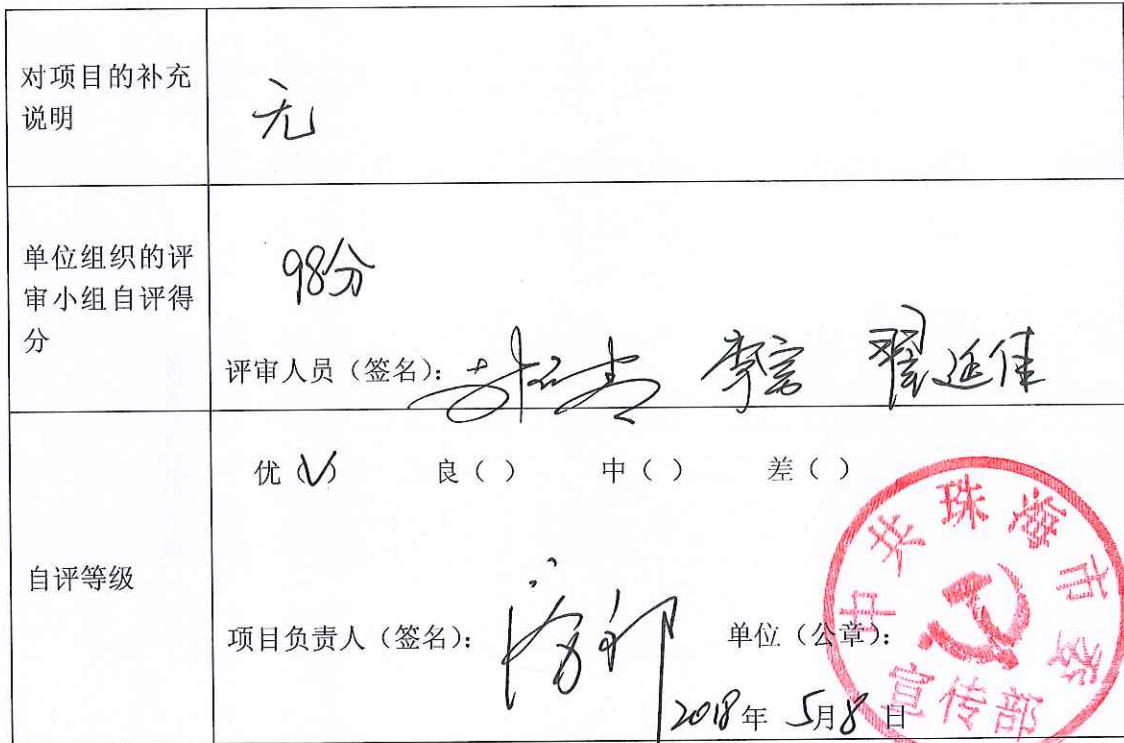 对项目的补充
说明
无
单位组织的评
审小组自评得
分
98分
评审人员（签名）：
翟延佳
自评等级
优（√） 良（ ） 中（ ） 差（ ）
项目负责人（签名）：
单位（公章）：
2018年 5月8日
中共珠海市委
宣传部